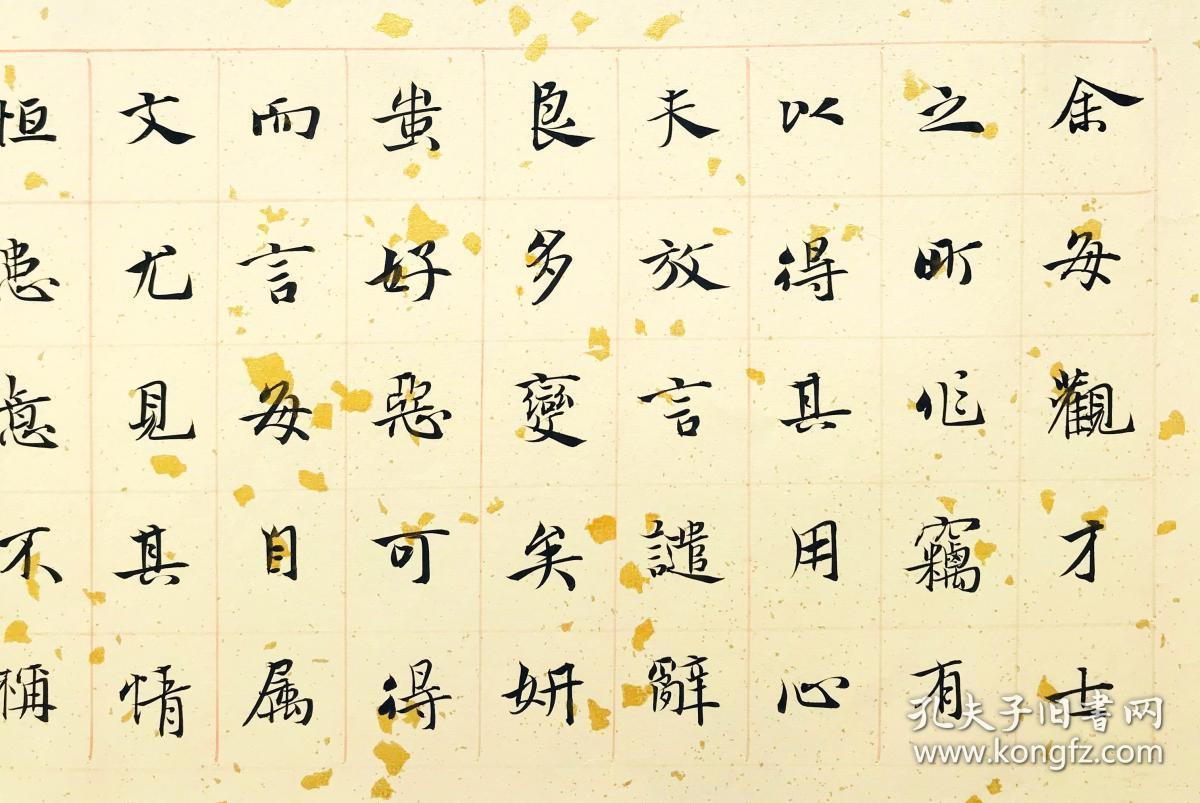 余每觀才士
之所作竊有
以得其用心
夫放言譴辭
良多變矣妍
蚩好惡可得
而言每自属
文尤見其情
恒患意不稱
孔夫子旧書网
www.kongfz.com